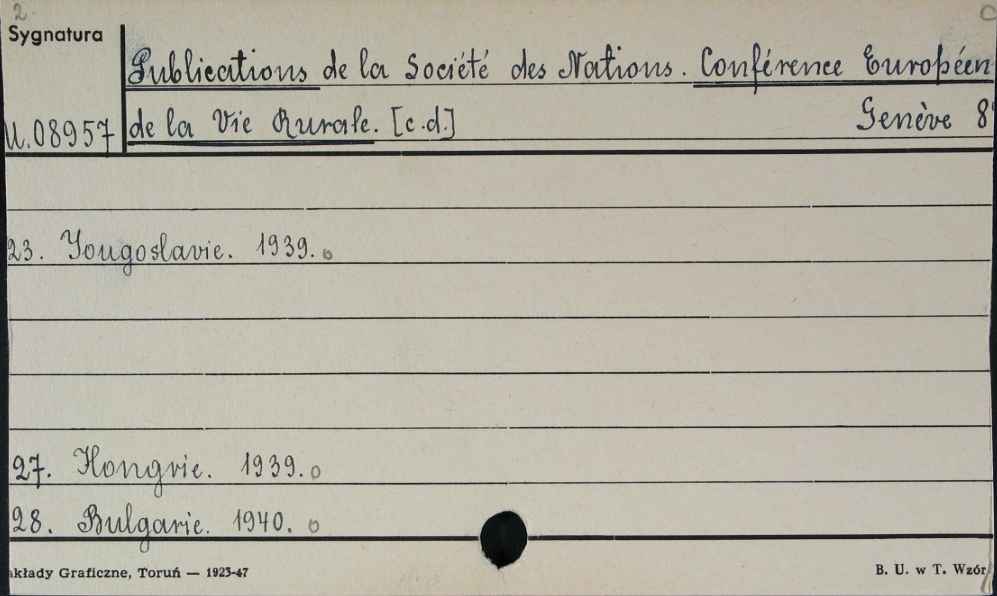 2
Sygnatura
Publications de la Société des Nations. Conférence Européen
U.08957 de la Vie Rurale. [c.d.] Genève 8°
23. Yougoslavie. 1939.
27. Hongrie. 1939.
28. Bulgarie. 1940.
kłady Graficzne, Toruń — 1923-47
B. U. w T. Wzór